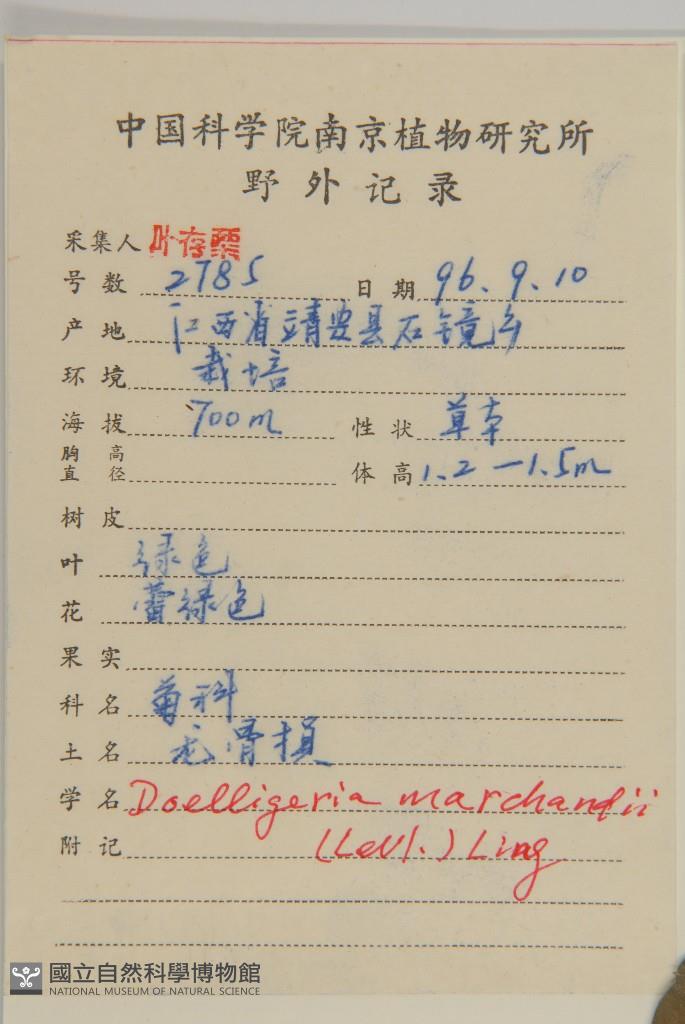 中国科学院南京植物研究所
野外记录
采集人 叶存粟
号数 2785 日期 96.9.10
产地 江西省靖安县石镜乡
环境 栽培
海拔 700m 性状 草本
胸高直径 体高 1.2—1.5m
树皮
叶 绿色
花 蕾绿色
果实
科名 菊科
土名 龙骨损
学名 Doelligeria marchandii
附记 (Levl.) Ling
國立自然科學博物館
NATIONAL MUSEUM OF NATURAL SCIENCE